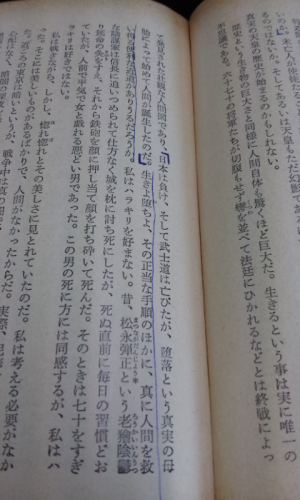 ではないか。そしてあるいは天皇もただ幻影であ
真実の天皇の歴史が始まるのかも知れない。
歴史という生き物の巨大さと同様に人間自体も驚くほど巨大だ。生きるという事は実に唯一の
不思議である。六十七十の将軍たちが切腹もせず轡を並べて法廷にひかれるなどとは終戦によっ
て発見された壮観な人間図であり、日本は負け、そして武士道は亡びたが、堕落という真実の母
胎によって始めて人間が誕生したのだ。生きよ堕ちよ、その正当な手順のほかに、真に人間を救
い得る便利な近道がありうるだろうか。私はハラキリを好まない。昔、松永弾正という老獪陰鬱
な陰謀家は信長に追いつめられて仕方なく城を枕に討死にしたが、死ぬ直前に毎日の習慣どお
り延命の灸をすえ、それから鉄砲を顔に押し当て顔を打ち砕いて死んだ。そのときは七十をすぎ
ていたが、人前で平気で女と戯れる悪どい男であった。この男の死に方には同感するが、私はハ
ラキリは好きではない。
私は戦きながら、しかし、惚れ惚れとその美しさに見とれていたのだ。私は考える必要がなか
った。そこには美しいものがあるばかりで、人間がなかったからだ。実際、
近ごろの東京は暗いというが、戦争中は真の